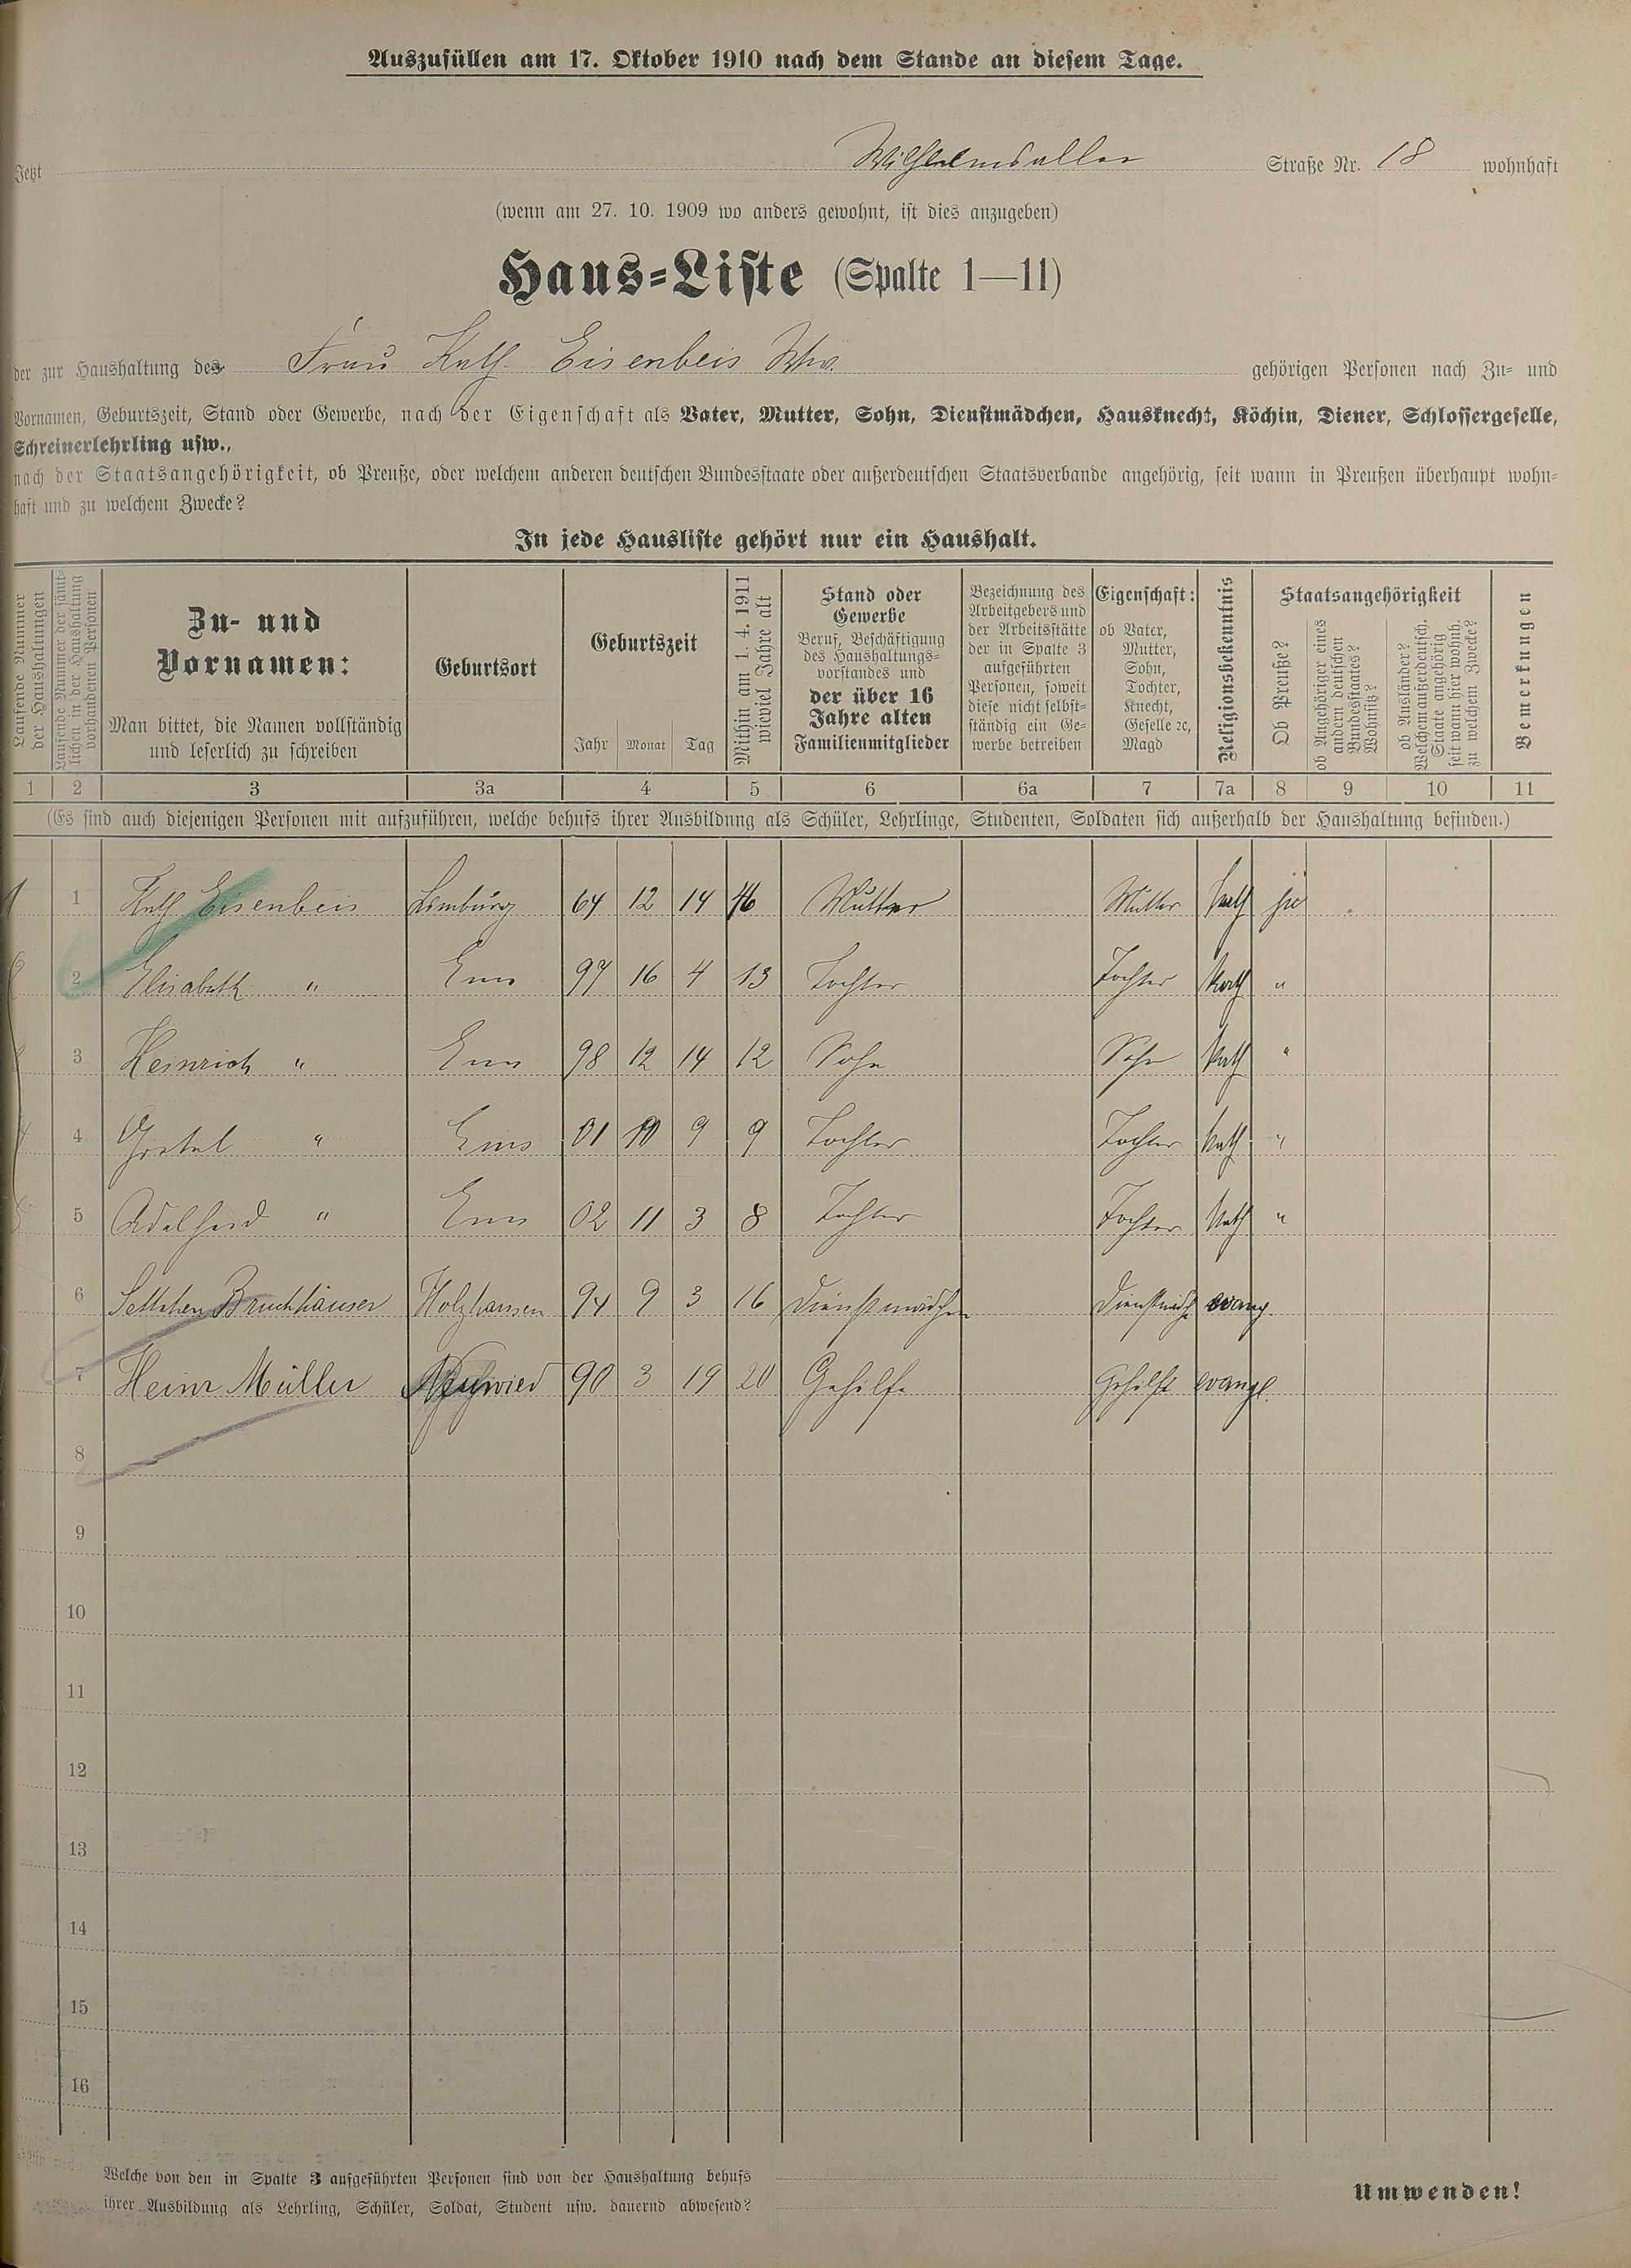 Auszufüllen am 17. Oktober 1910 nach dem Stande an diesem Tage.
Jetzt Wilhelmsallee Straße Nr. 18 wohnhaft
(wenn am 27. 10. 1909 wo anders gewohnt, ist dies anzugeben)
Haus-Liste (Spalte 1—11)
der zur Haushaltung des Frau Kath. Eisenbeis Ww. gehörigen Personen nach Zu- und
Vornamen, Geburtszeit, Stand oder Gewerbe, nach der Eigenschaft als Vater, Mutter, Sohn, Dienstmädchen, Hausknecht, Köchin, Diener, Schlossergeselle,
Schreinerlehrling usw.,
nach der Staatsangehörigkeit, ob Preuße, oder welchem anderen deutschen Bundesstaate oder außerdeutschen Staatsverbande angehörig, seit wann in Preußen überhaupt wohn-
haft und zu welchem Zwecke?
In jede Hausliste gehört nur ein Haushalt.
Laufende Nummer
der Haushaltungen
Laufende Nummer der sämt-
lichen in der Haushaltung
vorhandenen Personen
Zu- und
Vornamen:
Man bittet, die Namen vollständig
und leserlich zu schreiben
Geburtsort
Geburtszeit
Jahr Monat Tag
Mithin am 1. 4. 1911
wieviel Jahre alt
Stand oder
Gewerbe
Beruf, Beschäftigung
des Haushaltungs-
vorstandes und
der über 16
Jahre alten
Familienmitglieder
Bezeichnung des
Arbeitgebers und
der Arbeitsstätte
der in Spalte 3
aufgeführten
Personen, soweit
diese nicht selbst-
ständig ein Ge-
werbe betreiben
Eigenschaft:
ob Vater,
Mutter,
Sohn,
Tochter,
Knecht,
Geselle ꝛc,
Magd
Religionsbekenntnis
Staatsangehörigkeit
Ob Preuße?
ob Angehöriger eines
andern deutschen
Bundesstaates?
Wohnsitz?
ob Ausländer?
Welchem außerdeutsch.
Staate angehörig
seit wann hier wohnh.
zu welchem Zwecke?
Bemerkungen
1 2 3 3a 4 5 6 6a 7 7a 8 9 10 11
(Es sind auch diejenigen Personen mit aufzuführen, welche behufs ihrer Ausbildung als Schüler, Lehrlinge, Studenten, Soldaten sich außerhalb der Haushaltung befinden.)
1 1 Kath Eisenbeis Limburg 64 12 14 46 Mutter Mutter kath
2 Elisabeth " Ems 97 16 4 13 Tochter Tochter kath "
3 Heinrich " Ems 98 12 14 12 Sohn Sohn kath "
4 Gretel " Ems 01 10 9 9 Tochter Tochter kath "
5 Adelheid " Ems 02 11 3 8 Tochter Tochter kath "
6 Settchen Bruchhäuser Holzhausen 94 9 3 16 Dienstmädchen Dienstmädch evang.
7 Heinr Müller Neuwied 90 3 19 20 Gehilfe Gehilfe evangl.
8
9
10
11
12
13
14
15
16
Welche von den in Spalte 3 aufgeführten Personen sind von der Haushaltung behufs
ihrer Ausbildung als Lehrling, Schüler, Soldat, Student usw. dauernd abwesend?
Umwenden!